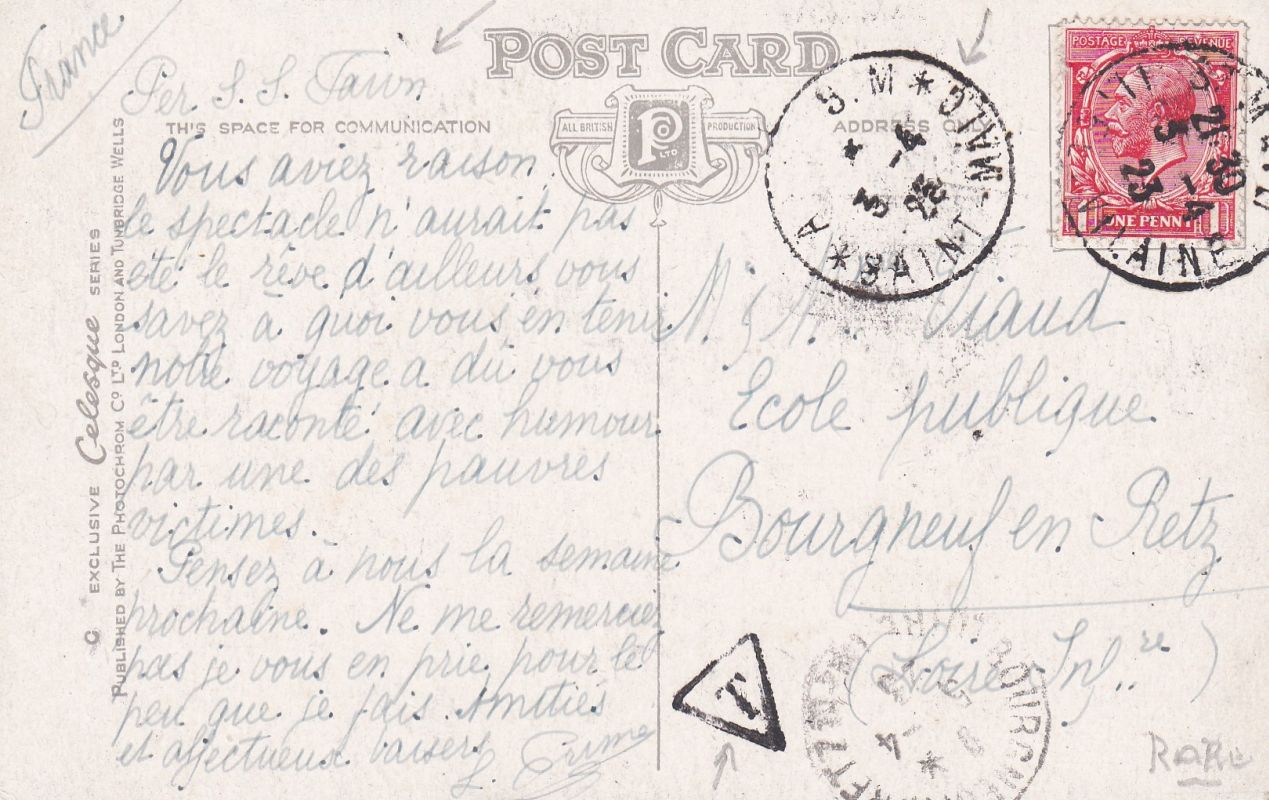 France
POST CARD
Per S. S.
THIS SPACE FOR COMMUNICATION
ALL BRITISH
P
LTD
PRODUCTION
ADDRESS ONLY
Vous aviez raison
le spectacle n'aurait pas
été le rêve d'ailleurs vous
savez à quoi vous en tenir
notre voyage a dû vous
être raconté avec humour
par une des pauvres
victimes.
Pensez à nous la semaine
prochaine. Ne me remerciez
pas je vous en prie pour le
peu que je fais. Amitiés
et affectueux baisers
EXCLUSIVE Celesque SERIES
PUBLISHED BY THE PHOTOCHROM CO LTD LONDON AND TUNBRIDGE WELLS
G.M * SAINT-MALO * A
3 -4
POSTAGE REVENUE
ONE PENNY
ST MALO
21 30
3 -4
23
VILAINE
Viaud
Ecole publique
Bourgneuf en Retz
(Loire Infre)
T
RARE